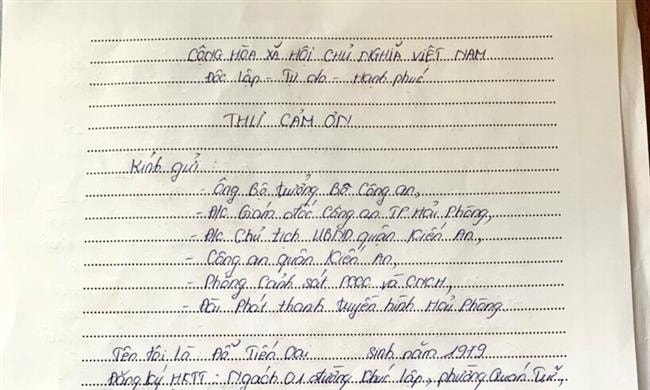 CỘNG HÒA XÃ HỘI CHỦ NGHĨA VIỆT NAM
Độc lập - Tự do - Hạnh phúc
THƯ CẢM ƠN
Kính gửi:
- Ông Bộ trưởng Bộ Công an,
- Đ/c Giám đốc Công an TP Hải Phòng,
- Đ/c Chủ tịch UBND quận Kiến An,
- Công an quận Kiến An,
- Phòng Cảnh sát PCCC và CNCH,
- Đài Phát thanh truyền hình Hải Phòng
Tên tôi là Đỗ Tiến Dai sinh năm 1979
Đăng ký HKTT: Ngách 01 đường Khúc lập, phường Quán Trữ,